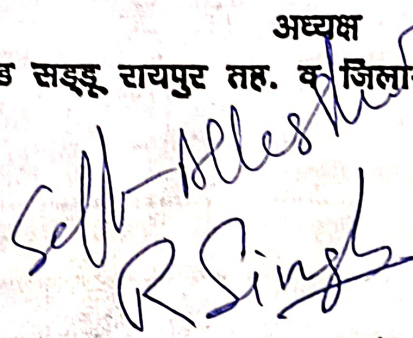 अध्यक्ष
ड सड्डू रायपुर तह. व जिला
Self-Attested
R Singh